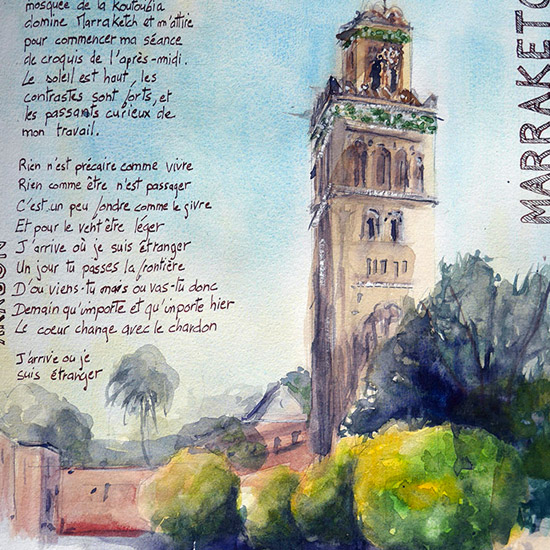 mosquée de la Koutoubia
domine Marraketch et m'attire
pour commencer ma séance
de croquis de l'après-midi.
Le soleil est haut, les
contrastes sont forts, et
les passants curieux de
mon travail.
Rien n'est précaire comme vivre
Rien comme être n'est passager
C'est un peu fondre comme le givre
Et pour le vent être léger
J'arrive où je suis étranger
Un jour tu passes la frontière
D'ou viens-tu mais ou vas-tu donc
Demain qu'importe et qu'inporte hier
Le coeur change avec le chardon
J'arrive ou je
suis étranger
MARRAKETC